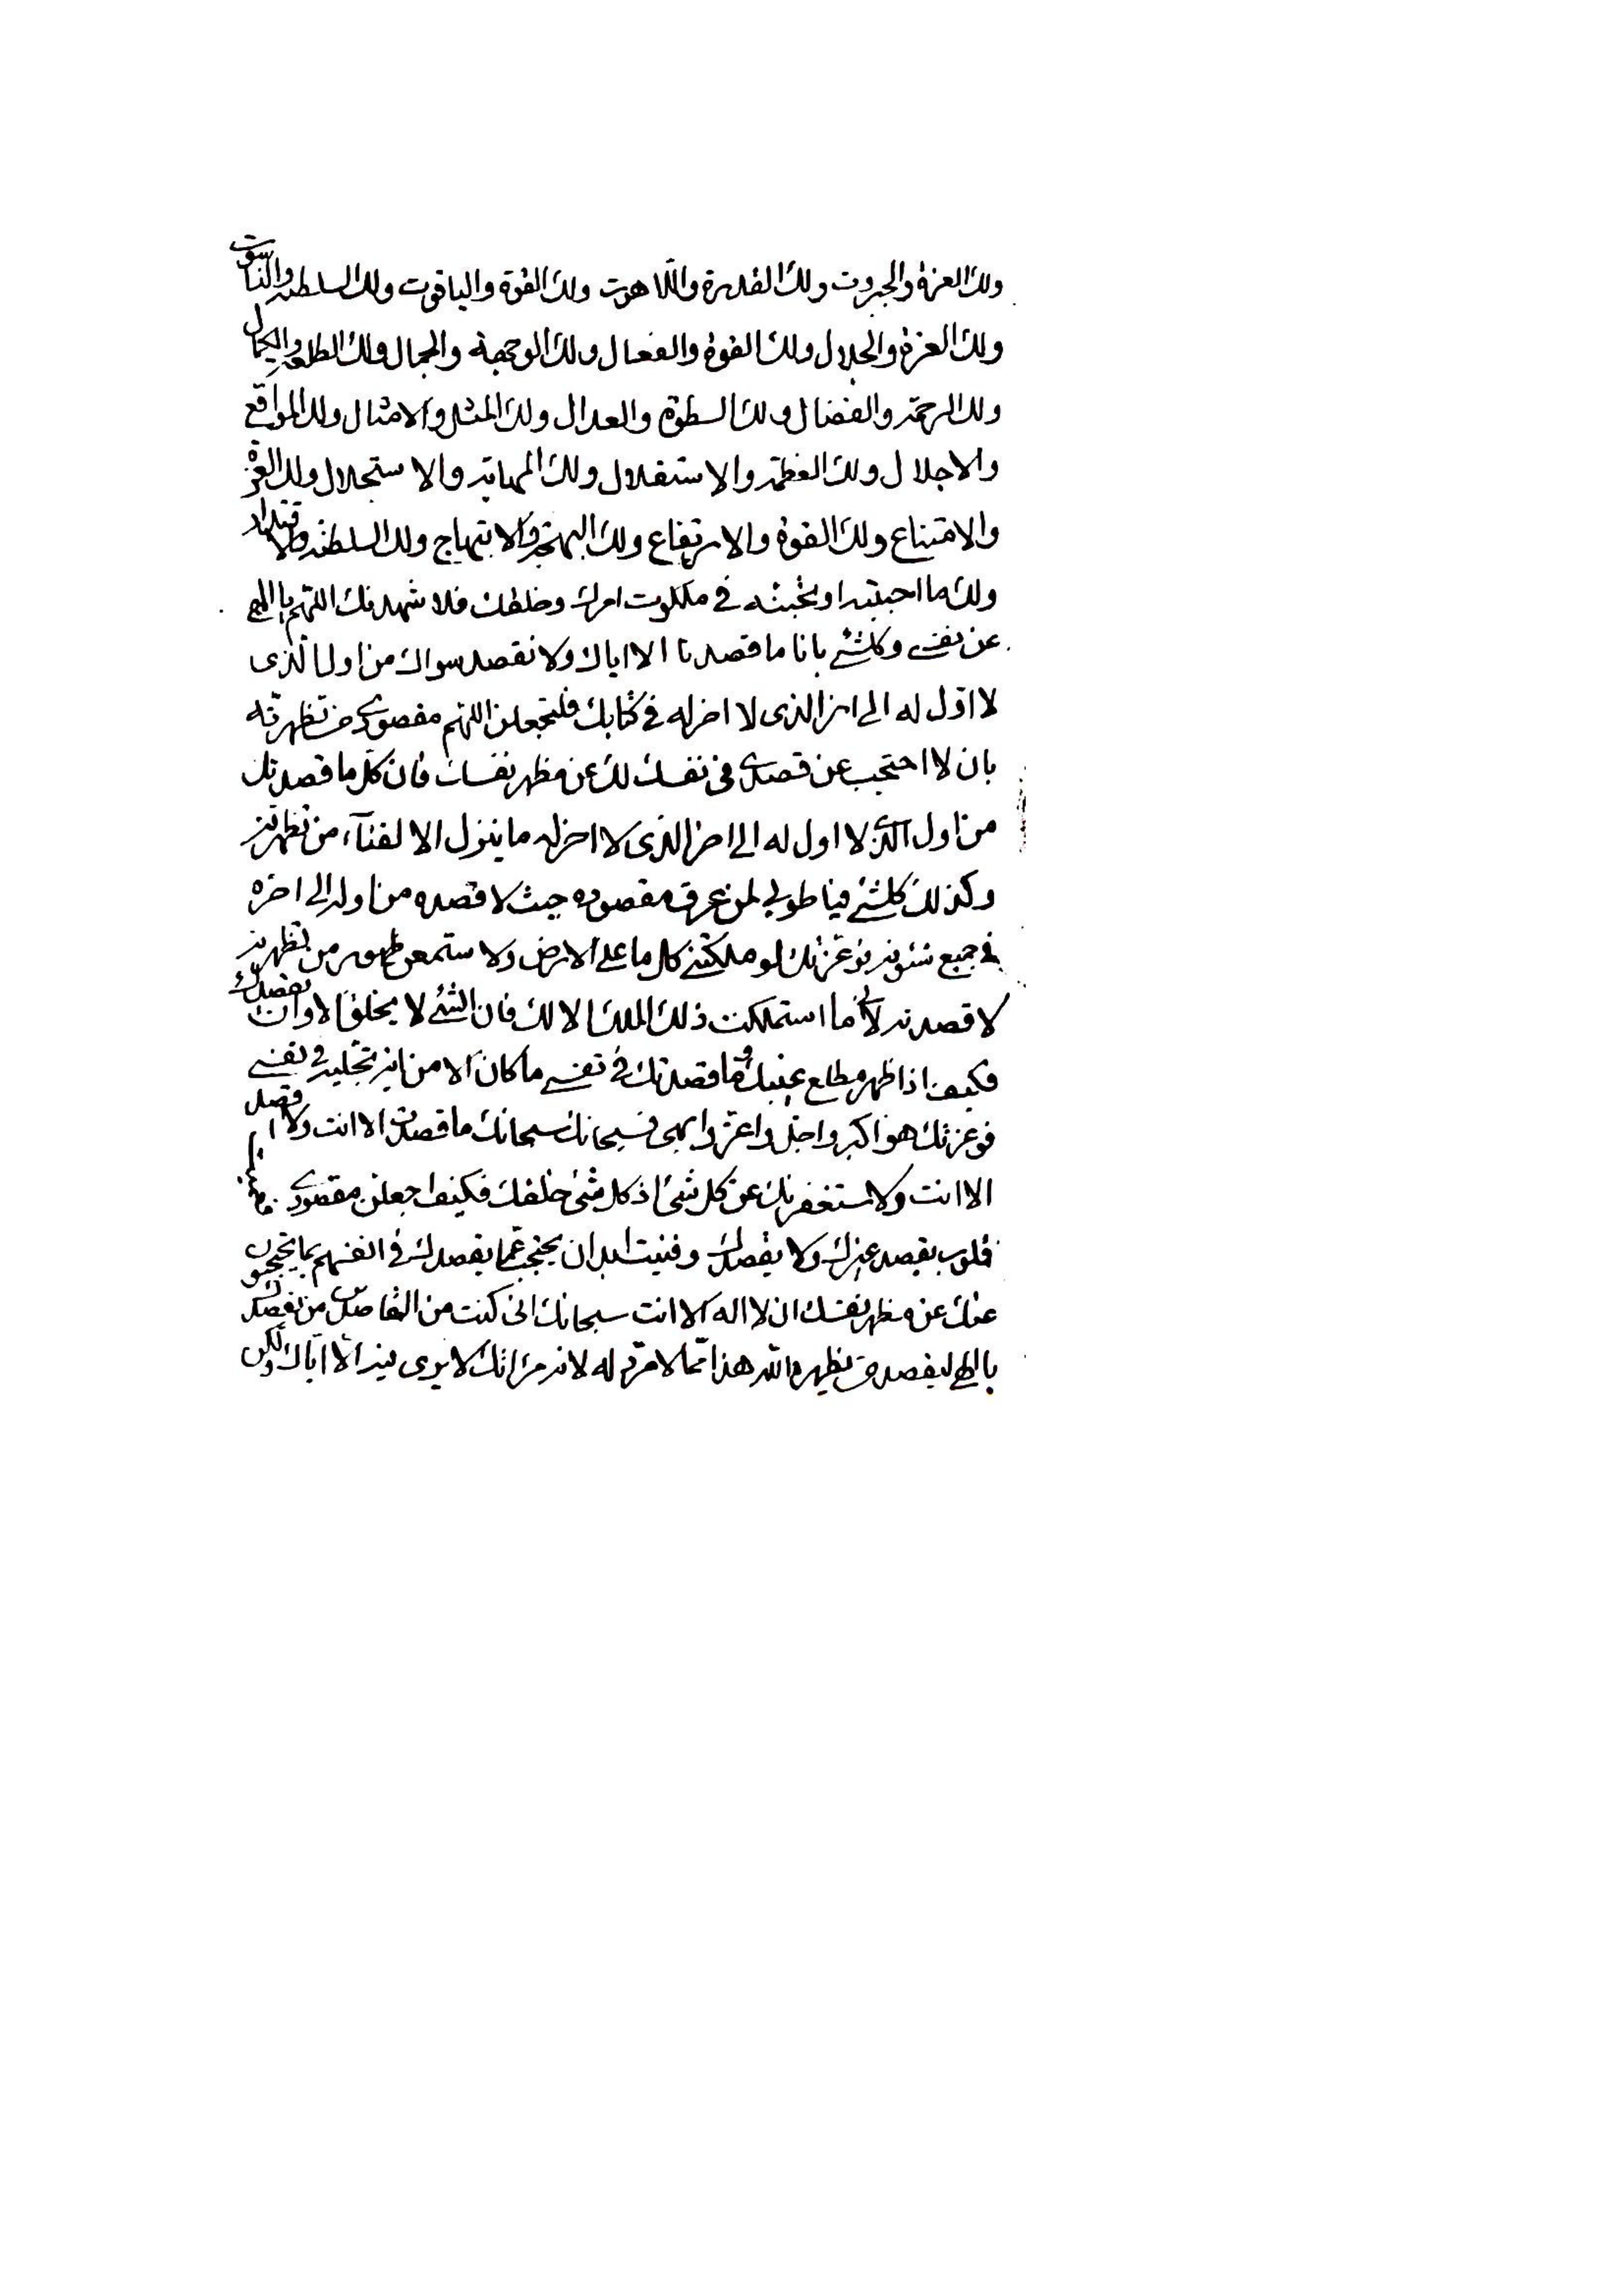 ولك العزة والجبروت ولك القدرة واللاهوت ولك القوة والياقوت ولك السلطنة والناسوت
ولك العزة والجلال ولك القوة والفعال ولك الوجهة والجمال ولك الطلعة والكمال
ولك الرحمة والفضال ولك السطوة والعدال ولك المثل والامثال ولك المواقع
والاجلال ولك العظمة والاستقلال ولك المهابة والاستجلال ولك العزة
والامتناع ولك القوة والارتفاع ولك البهجة والابتهاج ولك السلطنة والاقتدار
ولك ما احببته او تحببنه في ملكوت امرك وخلقك فلاشهدنك اللهم يا الهي
عن نفسي وكلشئ بانا ما قصدنا الا اياك ولا نقصد سواك من اول الذى
لا اول له الى اخر الذى لا اخر له في كتابك فلتجعلن اللهم مقصودي من تظهرنه
بان لا احتجب عن قصدي في نفسك لك عن مظهر نفسك فان كل ما قصدتك
من اول الذي لا اول له الى اخر الذى لا اخر له ما ينزل الا لفناء من تظهرنه
وكذلك كلشئ فيا طوبى لمن يعرف مقصوده حيث لا قصده من اوله الى اخره
في جميع شئونه فوعزتك لو ملكتني كل ما على الارض ولاستمعن ظهور من تظهرنه
لا قصدنه لاني ما استملكت ذلك الملك الا لك فان الشئ لا يخلق الا وان يقصدك
فكيف اذا ظهر مطلع غيبك وما قصدتك في نفسي ما كان الا من اية تجليه في نفسي
فوعزتك هو اكبر واجل واعز وابهى فسبحانك سبحانك ما قصدت الا انت ولا اقصد
الا انت ولاستغفرنك عن كل شئ اذ كل شئ خلقك فكيف اجعلن مقصودي
قلوب يقصد غيرك ولا يقصدك وفنيت ابدان يحتجب عما يقصدك في انفسهم بما يحتجبون
عنك عن مظهر نفسك ان لا اله الا انت سبحانك انى كنت من القاصدين من يقصدك
يا الهي ليقصد من يظهره الله هذا مما لا مرد له لانه مراتك لا يرى فيه الا اياك ولكن